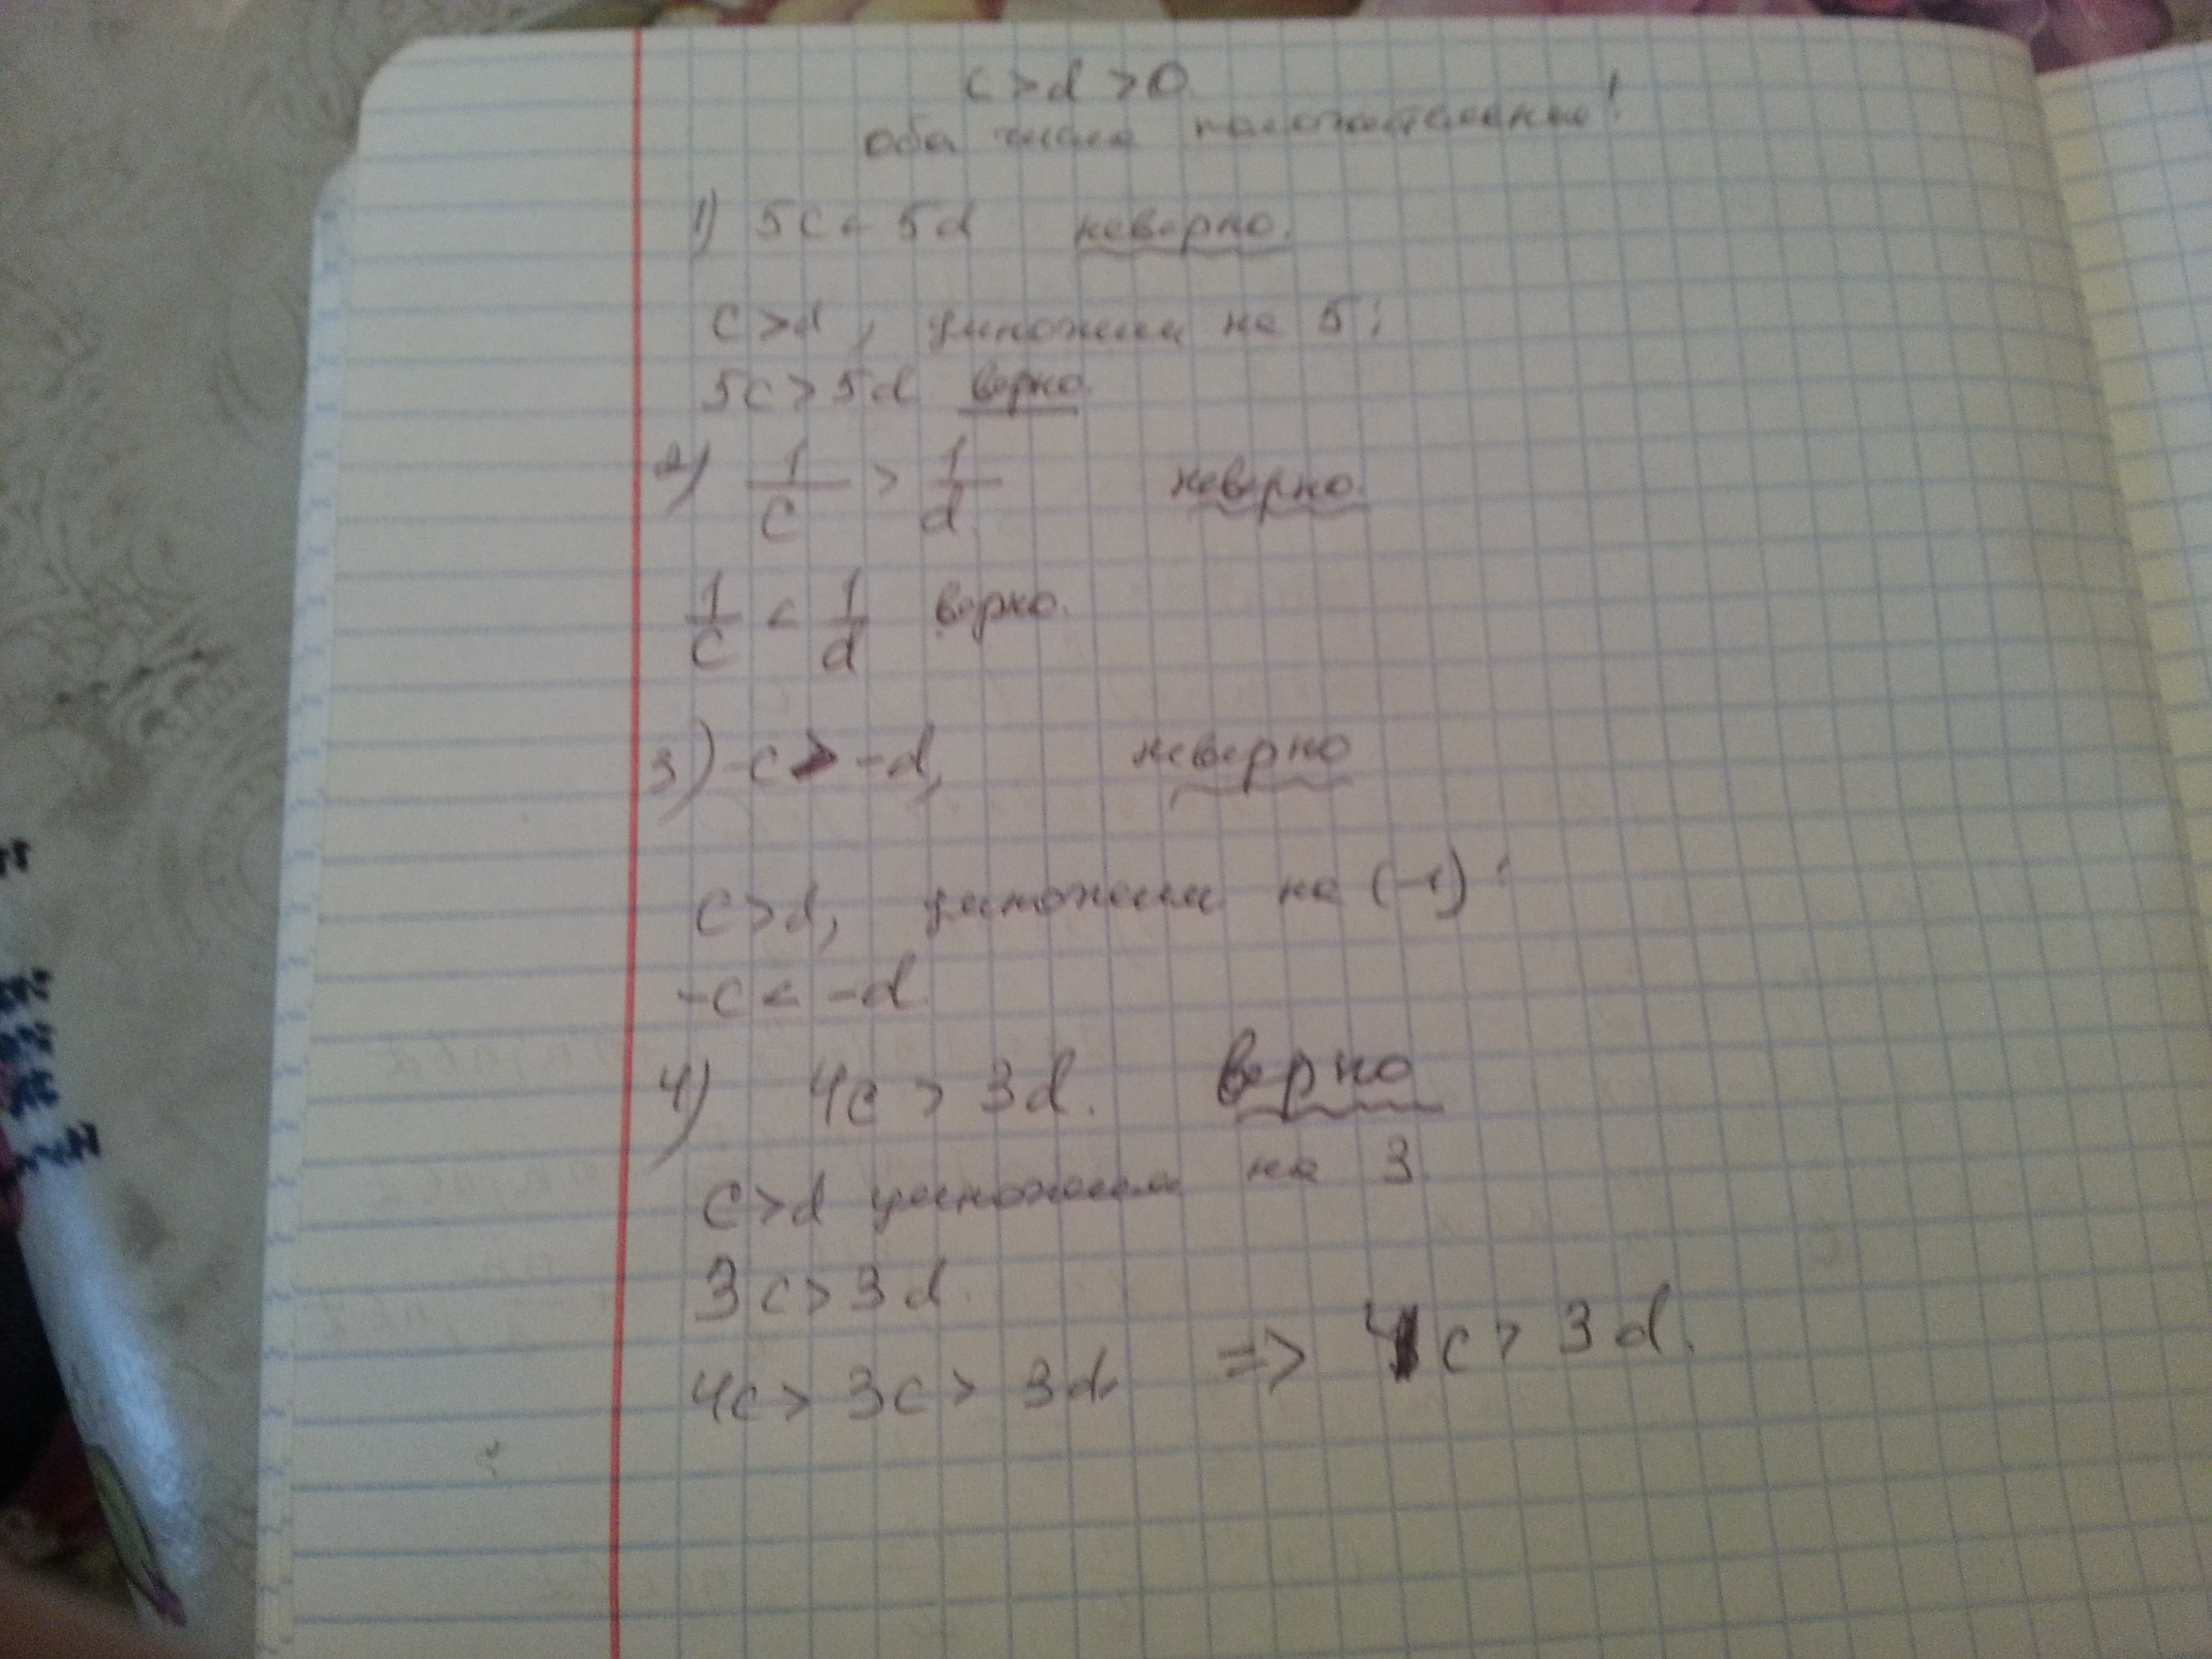 c > d > 0
оба числа положительные!
1) 5c < 5d неверно.
c > d, умножим на 5:
5c > 5d. верно.
2) 1/c > 1/d неверно.
1/c < 1/d верно.
3) -c > -d, неверно
c > d, умножим на (-1):
-c < -d.
4) 4c > 3d. верно
c > d умножим на 3
3c > 3d.
4c > 3c > 3d => 4c > 3d.